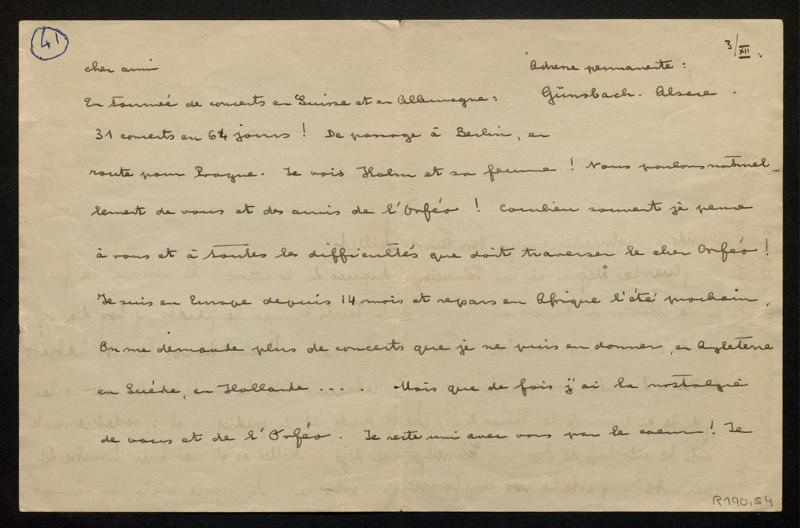 41
3/XII.
cher ami
Adresse permanente :
En tournée de concerts en Suisse et en Allemagne :
Günsbach. Alsace .
31 concerts en 64 jours ! De passage à Berlin, en
route pour Prague. Je vois Holm et sa femme ! Nous parlons naturel-
lement de vous et des amis de l'Orféo ! Combien souvent je pense
à vous et à toutes les difficultés que doit traverser le cher Orféo !
Je suis en Europe depuis 14 mois et repars en Afrique l'été prochain.
On me demande plus de concerts que je ne puis en donner, en Angleterre
en Suède, en Hollande .... Mais que de fois j'ai la nostalgie
de vous et de l'Orféo. Je reste uni avec vous par le coeur ! Je
R190.54